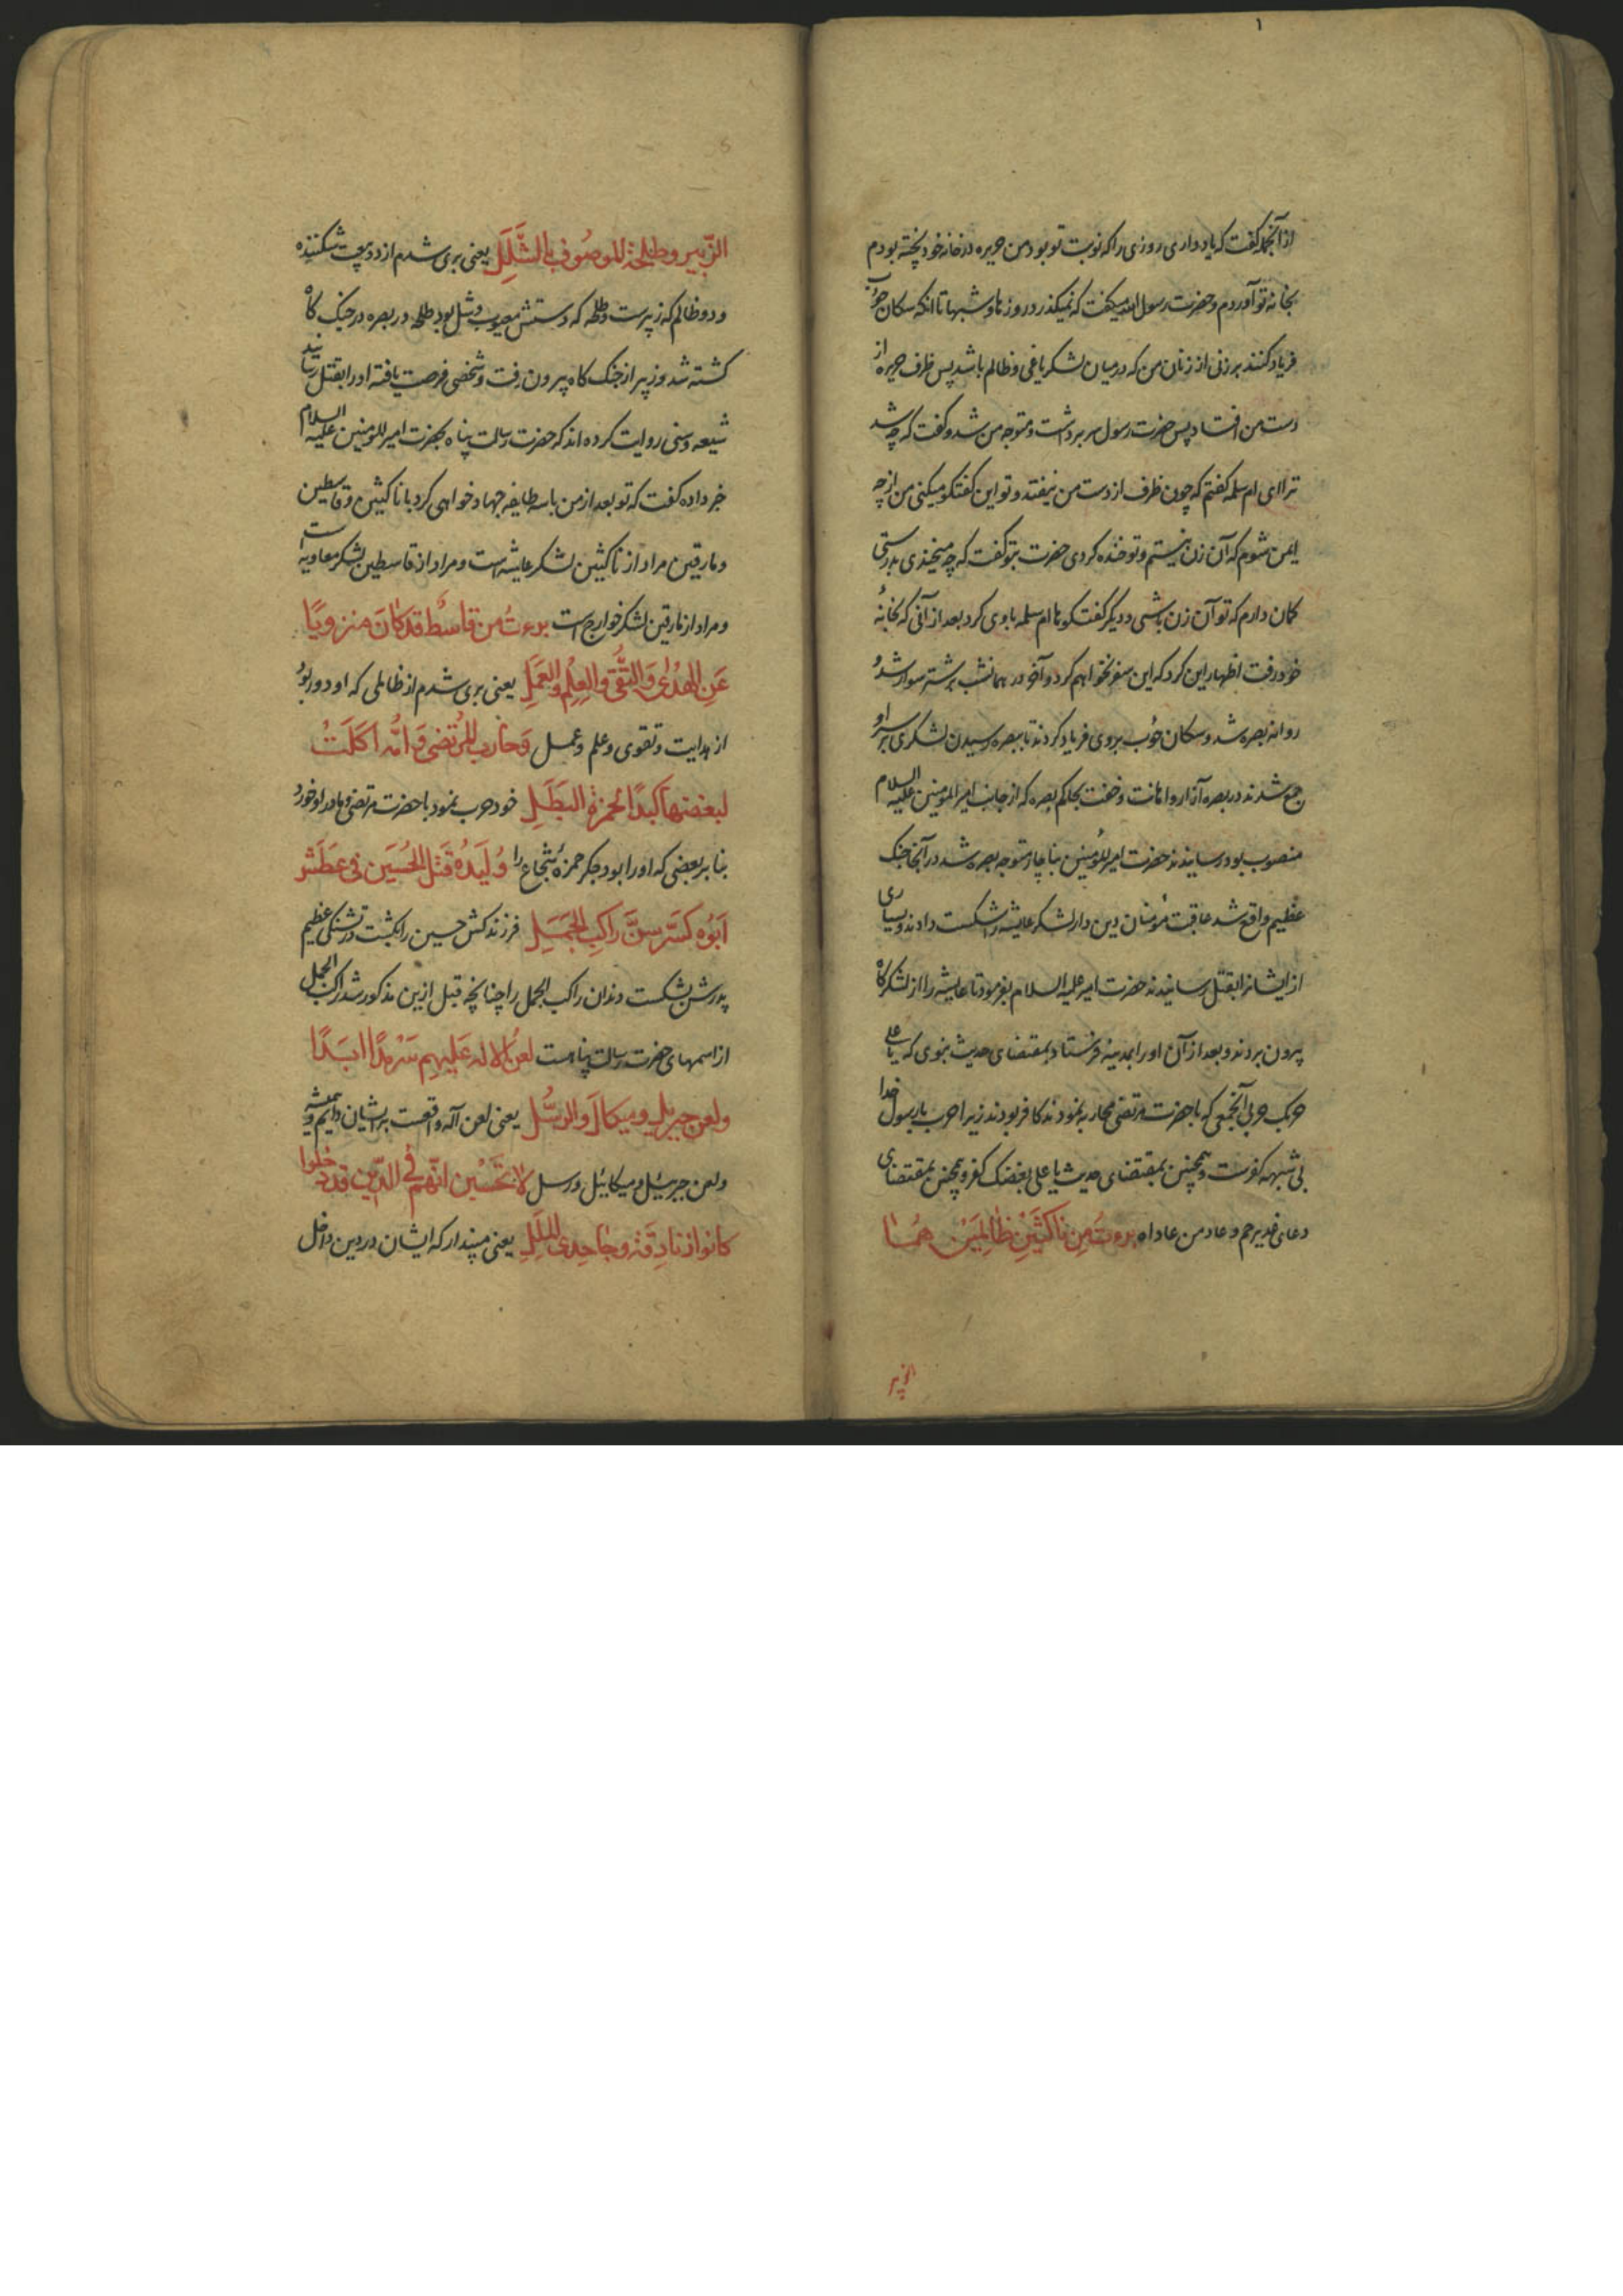 ازانجمله گفت که یاد داری روزی را که نوبت تو بود من حریره در خانه خود پخته بودم
بخانه تو آوردم و حضرت رسول الله میگفت که نمیگذرد روزها و شبها تا انکه سکان حوأب
فریاد کنند بر زنی از زنان من که در میان لشکر یاغی و ظالم باشد پس ظرف حریره از
دست من افتاد پس حضرت رسول سر برداشت و متوجه من شد و گفت که چه شد
ترا ای ام سلمه گفتم که چون ظرف از دست من نیفتد و تو این گفتگو میکنی من از چه
ایمن شوم که آن زن نیستم و تو خنده کردی حضرت بتو گفت که چه میخندی بدرستی
گمان دارم که تو آن زن باشی و دیگر گفتگوها ام سلمه با وی کرد بعد از آنی که بخانهٔ
خود رفت اظهار این کرد که این سفر نخواهم کرد و آخر در همانشب بر شتر سوار شد و
روانه بصره شد و سکان حوأب بر وی فریاد کردند تا ببصره رسیدن لشکری بر سر او
جمع شدند در بصره آزار و اهانت و خفت بحاکم بصره که از جانب امیر المؤمنین علیه السلام
منصوب بود رسانیدند حضرت امیر المؤمنین بناچار متوجه بصره شد در آنجا جنک
عظیم واقع شد عاقبت مؤمنان دین دار لشکر عایشه را شکست دادند و بسیاری
از ایشانرا بقتل رسانیدند حضرت امیر علیه السلام بفرمود تا عایشه را از لشکرگاه
بیرون بردند و بعد از آن او را بمدینه فرستاد بمقتضای حدیث نبوی که یا علی
حربک حربی آنجمعی که با حضرت مرتضی محاربه نمودند کافر بودند زیرا حرب با رسول خدا
بی شبهه کفرست و همچنین بمقتضای حدیث یا علی بغضک کفر و همچنین بمقتضای
دعای غدیر خم و عاد من عاداه برءت من ناکثین ظالمین هما
الزبیر
الزبیر وطلحة الموصوف بالشلل یعنی بری شدم از دو بیعت شکننده
و دو ظالم که زبیرست و طلحه که دستش معیوب و شل بود طلحه در بصره در جنک کاه
کشته شد و زبیر از جنک کاه بیرون رفت و شخصی فرصت یافته او را بقتل رسانید
شیعه و سنی روایت کرده اند که حضرت رسالت پناه بحضرت امیر المؤمنین علیه السلام
خبر داده گفت که تو بعد از من با سه طایفه جهاد خواهی کرد با ناکثین و قاسطین
و مارقین مراد از ناکثین لشکر عایشه است و مراد از قاسطین لشکر معاویه است
و مراد از مارقین لشکر خوارج است برءت من قاسط قد کان منزویا
عن الهدی والتقی والعلم والعمل یعنی بری شدم از ظالمی که او دور بود
از هدایت و تقوی و علم و عمل وحارب المرتضی وامه اکلت
لبغضها کبدا لحمزة البطل خود حرب نمود با حضرت مرتضی و مادر او خورد
بنا بر بعضی که او را بود جکر حمزه شجاع را ولیده قتل الحسین فی عطش
ابوه کسر سن راکب الجمل فرزندکش حسین را بکشت در تشنکی عظیم
پدرش بشکست دندان راکب الجمل را چنانچه قبل ازین مذکور شد راکب الجمل
از اسمهای حضرت رسالت پناهست لعن الاله علیهم سرمدا ابدا
ولعن جبریل ومیکال والرسل یعنی لعن آله واقعست بر ایشان دایم و همیشه
ولعن جبرئیل و میکائیل و رسل لا تحسبن انهم فی الدین قد دخلوا
کانوا زنادقة وجاحدی الملل یعنی مپندار که ایشان در دین داخل